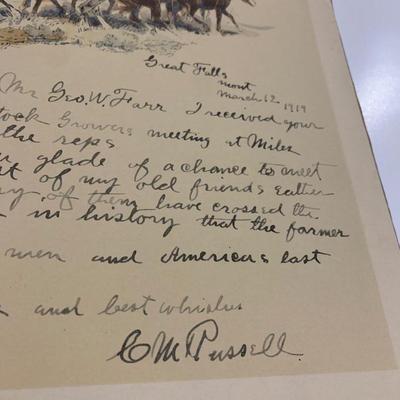 Great Falls
Mont
March 12 1919
Mr Geo. W. Farr I received your
tock Growers meeting at Miles
the reps
glade of a chance to meet
st of my old friends eather
ny of them have crossed the
in history that the farmer
men and Americas last
and best whishes
CM Russell